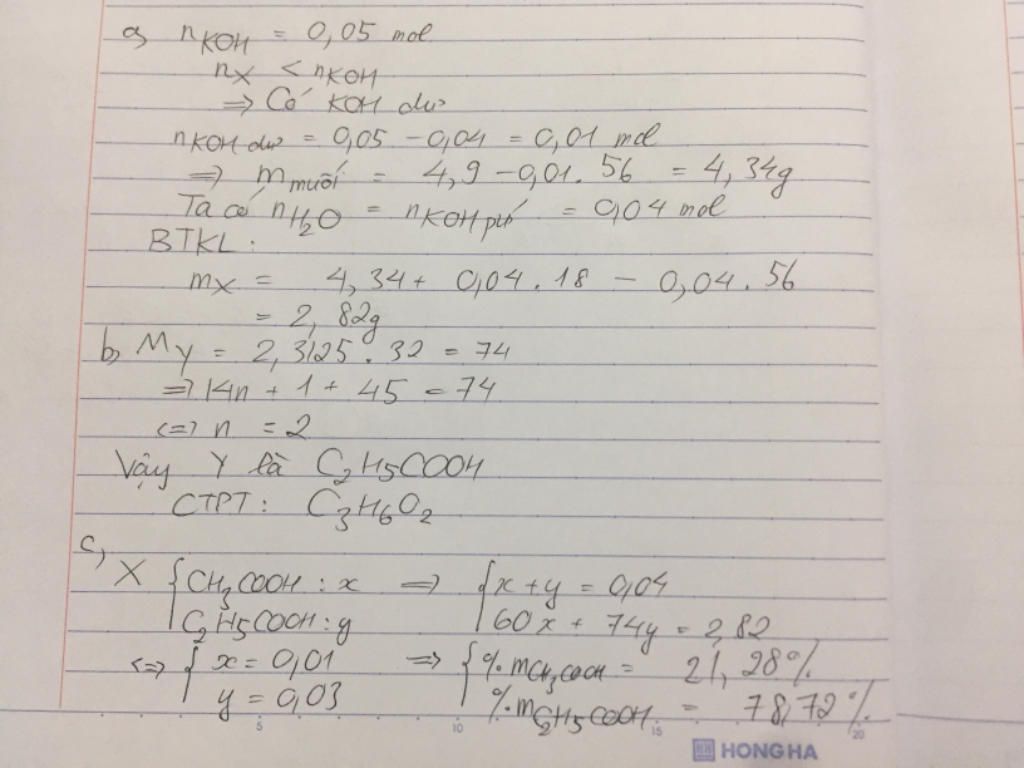 a, nKOH = 0,05 mol
nX < nKOH
=> Có KOH dư
nKOH dư = 0,05 - 0,04 = 0,01 mol
=> mmuối = 4,9 - 0,01 . 56 = 4,34g
Ta có nH2O = nKOH pứ = 0,04 mol
BTKL:
mX = 4,34 + 0,04 . 18 - 0,04 . 56
= 2,82g
b, MY = 2,3125 . 32 = 74
=> 14n + 1 + 45 = 74
<=> n = 2
Vậy Y là C2H5COOH
CTPT: C3H6O2
c,
X { CH3COOH : x => { x + y = 0,04
C2H5COOH : y 60x + 74y = 2,82
<=> { x = 0,01 => { %mCH3COOH = 21,28%
y = 0,03 %mC2H5COOH = 78,72%
5 10 15 20
HH HONG HA